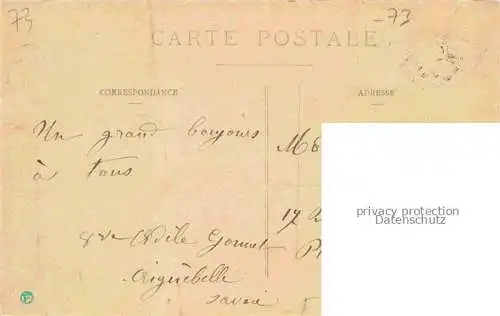 73
-73
CARTE POSTALE
CORRESPONDANCE
ADRESSE
Un grand boujours
à tous
M
17
Adèle Gonnet
Aiguebelle
Savoie
privacy protection
Datenschutz